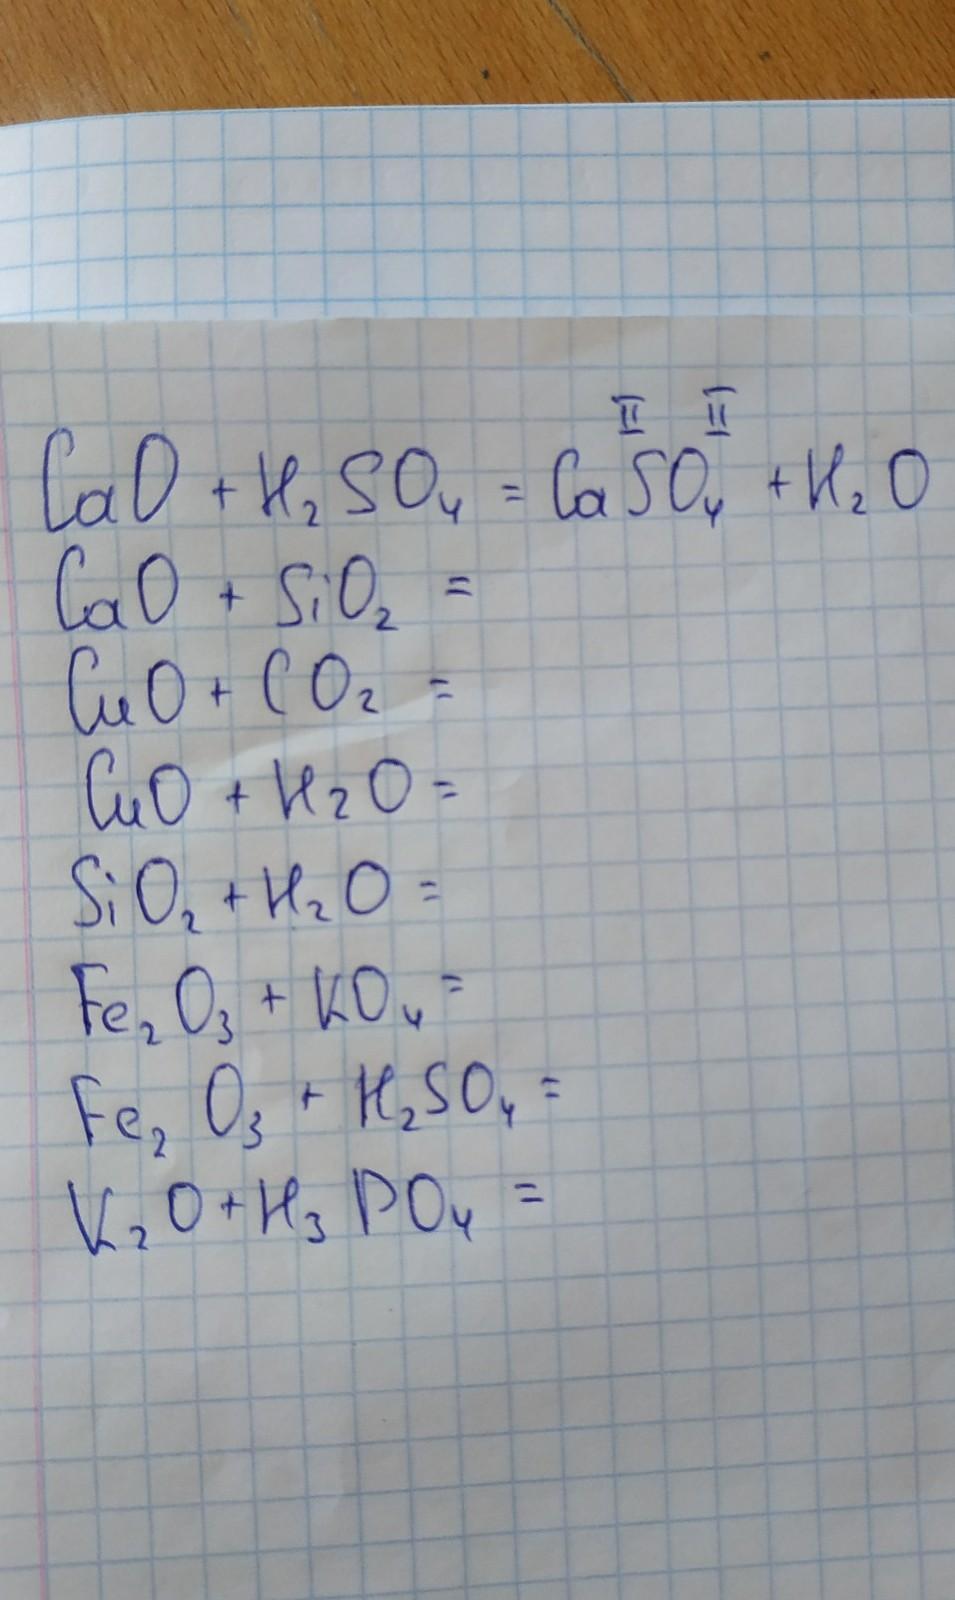 CaO + H₂SO₄ = CaSO₄ + H₂O
II II
CaO + SiO₂ =
CuO + CO₂ =
CuO + H₂O =
SiO₂ + H₂O =
Fe₂O₃ + KO₄ =
Fe₂O₃ + H₂SO₄ =
K₂O + H₃PO₄ =